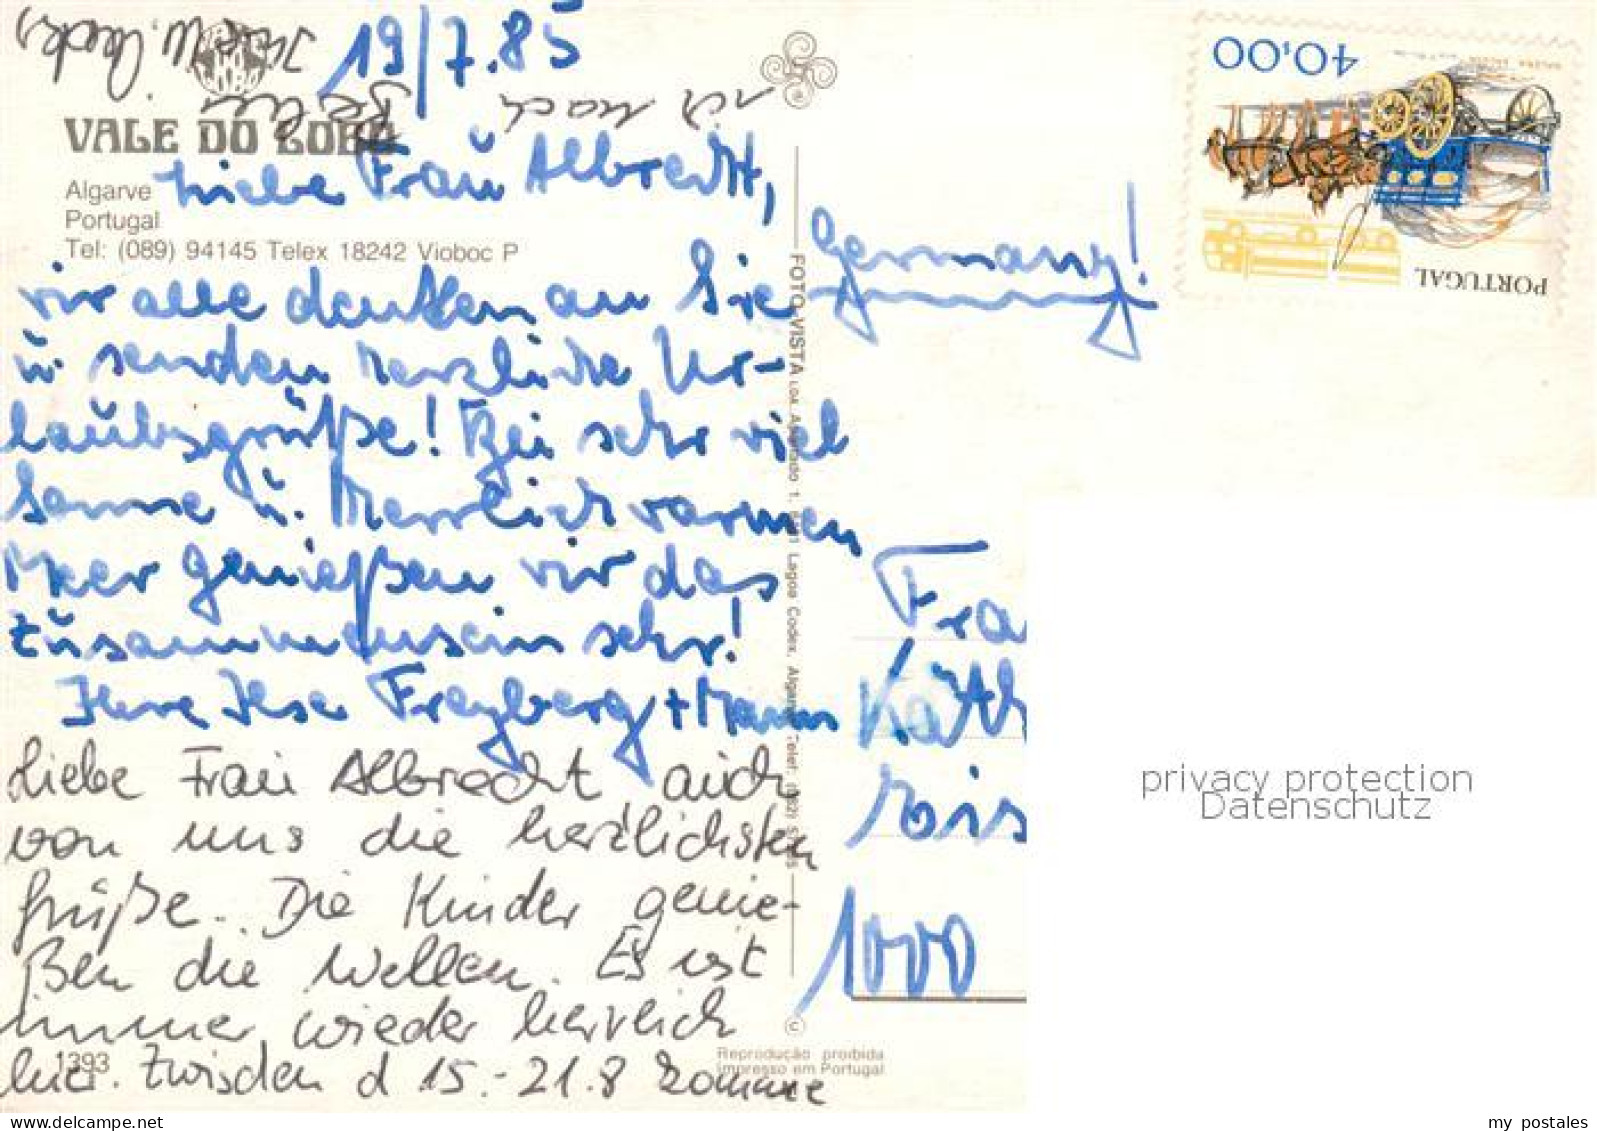 19/7.85
VALE DO LOBO
Algarve
Portugal
Tel: (089) 94145 Telex 18242 Vioboc P
Liebe Frau Albrecht,
wir alle denken an Sie
u. senden herzliche Ur-
laubsgrüße! Bei sehr viel
Sonne u. herrlich warmen
Meer genießen wir das
Zusammensein sehr!
Ihre Ilse Freyberg + Mann
Liebe Frau Albrecht auch
von uns die herzlichsten
Grüße. Die Kinder genie-
ßen die Wellen. Es ist
immer wieder herrlich
hier. Zwischen d 15.-21.8 komme
ich nach Berlin
1393
FOTO VISTA
Lagoa Codex, Algarve
© Reprodução proibida
Impresso em Portugal
PORTUGAL
40,00
Germany!
Fra
Käth
1000
privacy protection
Datenschutz
my postales
www.delcampe.net